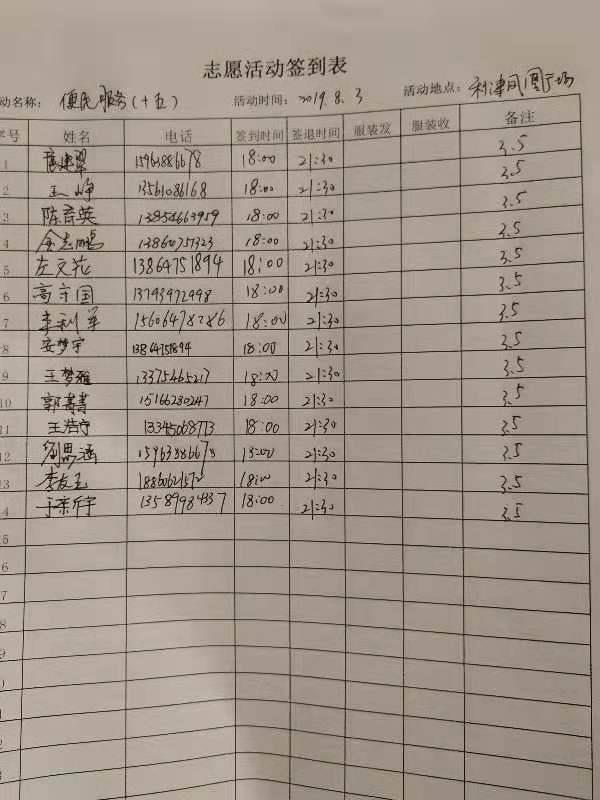 志愿活动签到表
动名称： 便民服务(十五) 活动时间：2019.8.3 活动地点：利津凤凰广场
学号 姓名 电话 签到时间 签退时间 服装发 服装收 备注
1 15963886678 18:00 21:30 3.5
2 王峥 13561086168 18:00 21:30 3.5
3 陈育英 13854663959 18:00 21:30 3.5
4 金志鹏 13860757323 18:00 21:30 3.5
5 左文苑 13864751894 18:00 21:30 3.5
6 高守国 13793972998 18:00 21:30 3.5
7 李利军 15606478286 18:00 21:30 3.5
8 安梦宇 13864751894 18:00 21:30 3.5
9 王梦雅 13375465217 18:00 21:30 3.5
10 15166280247 18:00 21:30 3.5
11 王浩宇 13345068713 18:00 21:30 3.5
12 刘思涵 15963886678 18:00 21:30 3.5
13 李友玉 18860621572 18:00 21:30 3.5
4 13589984337 18:00 21:30 3.5
5
6
7
8
9
0
1
2
3